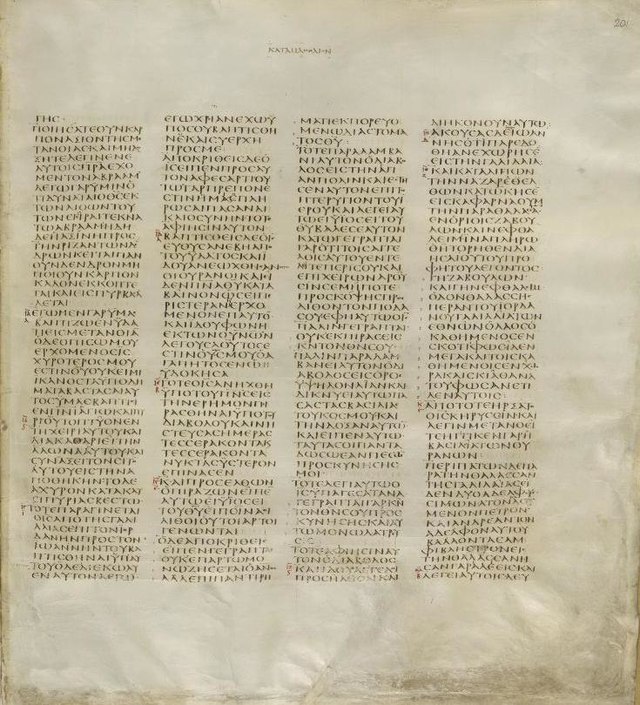 201
ΚΑΤΑΜΑΘΘΑΙΟΝ
ΓΗϹ
ΠΟΙΗϹΑΤΕΟΥΝΚΑΡ
ΠΟΝΑΞΙΟΝΤΗϹΜΕ
ΤΑΝΟΙΑϹΚΑΙΜΗΔΟ
ΞΗΤΕΛΕΓΙΝΕΝΕ
ΑΥΤΟΙϹΠΡΑΕΧΟ
ΜΕΝΤΟΝΑΒΡΑΑΜ
ΛΕΓΩΓΑΡΥΜΙΝΟ
ΤΙΔΥΝΑΤΑΙΟΘϹΕΚ
ΤΩΝΛΙΘΩΝΤΟΥ
ΤΩΝΕΓΙΡΑΙΤΕΚΝΑ
ΤΩΑΒΡΑΑΜΗΔΗ
ΔΕΗΑΞΙΝΗΠΡΟϹ
ΤΗΝΡΙΖΑΝΤΩΝΔΕ
ΔΡΩΝΚΕΙΤΑΙΠΑΝ
ΟΥΝΔΕΝΔΡΟΝΜΗ
ΠΟΙΟΥΝΚΑΡΠΟΝ
ΚΑΛΟΝΕΚΚΟΠΤΕ
ΤΑΙΚΑΙΕΙϹΠΥΡΒΑΛ
ΛΕΤΑΙ
ΕΓΩΜΕΝΓΑΡΥΜΑϹ
ΒΑΠΤΙΖΩΕΝΥΔΑ
ΤΙΕΙϹΜΕΤΑΝΟΙΑ
ΟΔΕΟΠΙϹΩΜΟΥ
ΕΡΧΟΜΕΝΟϹΙϹ
ΧΥΡΟΤΕΡΟϹΜΟΥ
ΕϹΤΙΝΟΥΟΥΚΕΙΜΙ
ΙΚΑΝΟϹΤΑΥΠΟΔΗ
ΜΑΤΑΒΑϹΤΑϹΑΙΑΥ
ΤΟϹΥΜΑϹΒΑΠΤΙϹΙ
ΕΝΠΝΙΑΓΙΩΚΑΙΠΥ
ΡΙΟΥΤΟΠΤΥΟΝΕΝ
ΤΗΧΕΙΡΙΑΥΤΟΥΚΑΙ
ΔΙΑΚΑΘΑΡΙΕΙΤΗΝ
ΑΛΩΝΑΑΥΤΟΥΚΑΙ
ϹΥΝΑΞΕΙΤΟΝϹΙ
ΑΥΤΟΥΕΙϹΤΗΝΑ
ΠΟΘΗΚΗΝΤΟΔΕ
ΑΧΥΡΟΝΚΑΤΑΚΑΥ
ϹΙΠΥΡΙΑϹΒΕϹΤΩ
ΤΟΤΕΠΑΡΑΓΙΝΕΤΑΙ
ΟΙϹΑΠΟΤΗϹΓΑΛΙ
ΛΑΙΑϹΕΠΙΤΟΝΙΟΡ
ΔΑΝΗΝΠΡΟϹΤΟΝ
ΙΩΑΝΝΗΝΤΟΥΒΑ
ΠΤΙϹΘΗΝΑΙΥΠΑΥ
ΤΟΥΟΔΕΔΙΕΚΩΛΥ
ΕΝΑΥΤΟΝΛΕΓΩ
ΕΓΩΧΡΙΑΝΕΧΩΥ
ΠΟϹΟΥΒΑΠΤΙϹΘΗ
ΝΕΚΑΙϹΥΕΡΧΗ
ΠΡΟϹΜΕ
ΑΠΟΚΡΙΘΕΙϹΔΕΟ
ΙϹΕΙΠΕΝΠΡΟϹΑΥ
ΤΟΝΑΦΕϹΑΡΤΙΟΥ
ΤΩΓΑΡΠΡΕΠΟΝΕ
ϹΤΙΝΗΜΑϹΠΛΗ
ΡΩϹΑΙΠΑϹΑΝΔΙ
ΚΑΙΟϹΥΝΗΝΤΟΤΕ
ΑΦΙΗϹΙΝΑΥΤΟΝ
ΒΑΠΤΙϹΘΕΙϹΔΕΟΙϹ
ΕΥΘΥϹΑΝΕΒΗΑΠΟ
ΤΟΥΥΔΑΤΟϹΚΑΙΙ
ΔΟΥΑΝΕΩΧΘΗϹΑΝ
ΟΙΟΥΡΑΝΟΙΚΑΙΙ
ΔΕΝΠΝΑΘΥΚΑΤΑ
ΒΑΙΝΟΝΩϹΕΙΠΕ
ΡΙϹΤΕΡΑΝΕΡΧΟ
ΜΕΝΟΝΕΠΑΥΤΟ
ΚΑΙΙΔΟΥΦΩΝΗ
ΕΚΤΩΝΟΥΝΩΝ
ΛΕΓΟΥϹΑΟΥΤΟϹΕ
ϹΤΙΝΟΥϹΜΟΥΟΑ
ΓΑΠΗΤΟϹΕΝΩΗΥ
ΔΟΚΗϹΑ
ΤΟΤΕΟΙϹΑΝΗΧΘΗ
ΥΠΟΤΟΥΠΝϹΕΙϹ
ΤΗΝΕΡΗΜΟΝΠΙ
ΡΑϹΘΗΝΑΙΥΠΟΤΟΥ
ΔΙΑΒΟΛΟΥΚΑΙΝΗ
ϹΤΕΥϹΑϹΗΜΕΡΑϹ
ΤΕϹϹΕΡΑΚΟΝΤΑΚ
ΤΕϹϹΕΡΑΚΟΝΤΑ
ΝΥΚΤΑϹΥϹΤΕΡΟΝ
ΕΠΙΝΑϹΕΝ
ΚΑΙΠΡΟϹΕΛΘΩΝ
ΟΠΙΡΑΖΩΝΕΙΠΕ
ΑΥΤΩΕΙΥΙΟϹΕΙ
ΤΟΥΘΥΕΙΠΟΝΙΝΑΟΙ
ΛΙΘΟΙΟΥΤΟΙΑΡΤΟΙ
ΓΕΝΩΝΤΑΙ
ΟΔΕΑΠΟΚΡΙΘΕΙϹ
ΕΙΠΕΝΓΕΓΡΑΠΤΑΙ
ΟΥΚΕΠΑΡΤΩΜΟ
ΝΩΖΗϹΕΤΑΙΟΑΝΟϹ
ΑΛΛΕΠΙΠΑΝΤΙΡΗ
ΜΑΤΙΕΚΠΟΡΕΥΟ
ΜΕΝΩΔΙΑϹΤΟΜΑ
ΤΟϹΘΥ
ΤΟΤΕΠΑΡΑΛΑΜΒΑ
ΝΙΑΥΤΟΝΟΔΙΑΒΟ
ΛΟϹΕΙϹΤΗΝΑΓΙ
ΑΝΠΟΛΙΝΚΑΙΕϹΤΗ
ϹΕΝΑΥΤΟΝΕΠΙΤΟ
ΠΤΕΡΥΓΙΟΝΤΟΥΙ
ΕΡΟΥΚΑΙΛΕΓΕΙΑΥ
ΤΩΕΙΥΙΟϹΕΙΤΟΥ
ΘΥΒΑΛΕϹΕΑΥΤΟΝ
ΚΑΤΩΓΕΓΡΑΠΤΑΙ
ΓΑΡΟΤΙΤΟΙϹΑΓΓΕ
ΛΟΙϹΑΥΤΟΥΕΝΤΕ
ΛΙΤΕΠΕΡΙϹΟΥΚΑΙ
ΕΠΙΧΕΙΡΩΝΑΡΟΥ
ϹΙΝϹΕΜΗΠΟΤΕ
ΠΡΟϹΚΟΨΗϹΠΡΟϹ
ΛΙΘΟΝΤΟΝΠΟΔΑ
ϹΟΥΕΦΗΑΥΤΩΟΙϹ
ΠΑΛΙΝΓΕΓΡΑΠΤΑΙ
ΟΥΚΕΚΠΙΡΑϹΕΙϹ
ΚΝΤΟΝΘΝϹΟΥ
ΠΑΛΙΝΠΑΡΑΛΑΜ
ΒΑΝΕΙΑΥΤΟΝΟΔΙ
ΑΒΟΛΟϹΕΙϹΟΡΟϹ
ΥΨΗΛΟΝΛΙΑΝΚΑΙ
ΔΙΚΝΥΕΙΑΥΤΩΠΑ
ϹΑϹΤΑϹΒΑϹΙΛΙΑϹ
ΤΟΥΚΟϹΜΟΥΚΑΙ
ΤΗΝΔΟΞΑΝΑΥΤΩ
ΚΑΙΕΙΠΕΝΑΥΤΩ
ΤΑΥΤΑϹΟΙΠΑΝΤΑ
ΔΩϹΩΕΑΝΠΕϹΩ
ΠΡΟϹΚΥΝΗϹΗϹ
ΜΟΙ
ΤΟΤΕΛΕΓΙΑΥΤΩΟ
ΙϹΥΠΑΓΕϹΑΤΑΝΑ
ΓΕΓΡΑΠΤΑΙΓΑΡΚΝ
ΤΟΝΘΝϹΟΥΠΡΟϹ
ΚΥΝΗϹΙϹΚΑΙΑΥ
ΤΩΜΟΝΩΛΑΤΡΕΥ
ϹΙϹ
ΤΟΤΕΑΦΙΗϹΙΝΑΥ
ΤΟΝΟΔΙΑΒΟΛΟϹ
ΚΑΙΙΔΟΥΑΓΓΕΛΟΙ
ΠΡΟϹΗΛΘΟΝΚΑΙ
ΔΙΗΚΟΝΟΥΝΑΥΤΩ
ΑΚΟΥϹΑϹΔΕΙΩΑΝ
ΝΗϹΟΤΙΠΑΡΕΔΟ
ΘΗΑΝΕΧΩΡΗϹΕ
ΕΙϹΤΗΝΓΑΛΙΛΑΙΑ
ΚΑΙΚΑΤΑΛΙΠΩΝ
ΤΗΝΝΑΖΑΡΕΘΕΛ
ΘΩΝΚΑΤΩΚΗϹΕ
ΕΙϹΚΑΦΑΡΝΑΟΥΜ
ΤΗΝΠΑΡΑΘΑΛΑϹϹΑ
ΕΝΟΡΙΟΙϹΖΑΒΟΥ
ΛΩΝΚΑΙΝΕΦΘΑ
ΛΕΙΜΙΝΑΠΛΗΡΩ
ΘΗΤΟΡΗΘΕΝΔΙΑ
ΗϹΑΙΟΥΤΟΥΠΡΟ
ΦΗΤΟΥΛΕΓΟΝΤΟϹ
ΓΗΖΑΒΟΥΛΩΝ
ΚΑΙΓΗΝΕΦΘΑΛΙΜ
ΟΔΟΝΘΑΛΑϹϹΗϹ
ΠΕΡΑΝΤΟΥΙΟΡΔΑ
ΝΟΥΓΑΛΙΛΑΙΑΤΩΝ
ΕΘΝΩΝΟΛΑΟϹΟ
ΚΑΘΗΜΕΝΟϹΕΝ
ϹΚΟΤΙΦΩϹΕΙΔΕΝ
ΜΕΓΑΚΑΙΤΟΙϹΚΑ
ΘΗΜΕΝΟΙϹΕΝΧΩ
ΡΑΚΑΙϹΚΙΑΘΑΝΑ
ΤΟΥΦΩϹΑΝΕΤΙ
ΛΕΝΑΥΤΟΙϹ
ΑΠΟΤΟΤΕΗΡΞΑΤΟ
ΟΙϹΚΗΡΥϹϹΙΝΚΑΙ
ΛΕΓΙΝΜΕΤΑΝΟΕΙ
ΤΕΗΓΓΙΚΕΝΓΑΡΗ
ΒΑϹΙΛΙΑΤΩΝΟΥ
ΡΑΝΩΝ
ΠΕΡΙΠΑΤΩΝΔΕΠΑ
ΡΑΤΗΝΘΑΛΑϹϹΑΝ
ΤΗϹΓΑΛΙΛΑΙΑϹΕΙ
ΔΕΝΔΥΟΑΔΕΛΦΟΥϹ
ϹΙΜΩΝΑΤΟΝΛΕΓΟ
ΜΕΝΟΝΠΕΤΡΟΝ
ΚΑΙΑΝΔΡΕΑΝΤΟΝ
ΑΔΕΛΦΟΝΑΥΤΟΥ
ΒΑΛΛΟΝΤΑϹΑΜ
ΦΙΒΛΗϹΤΡΟΝΕΙϹ
ΤΗΝΘΑΛΑϹϹΑΝΗ
ϹΑΝΓΑΡΑΛΕΕΙϹΚΑΙ
ΛΕΓΕΙΑΥΤΟΙϹΔΕΥ